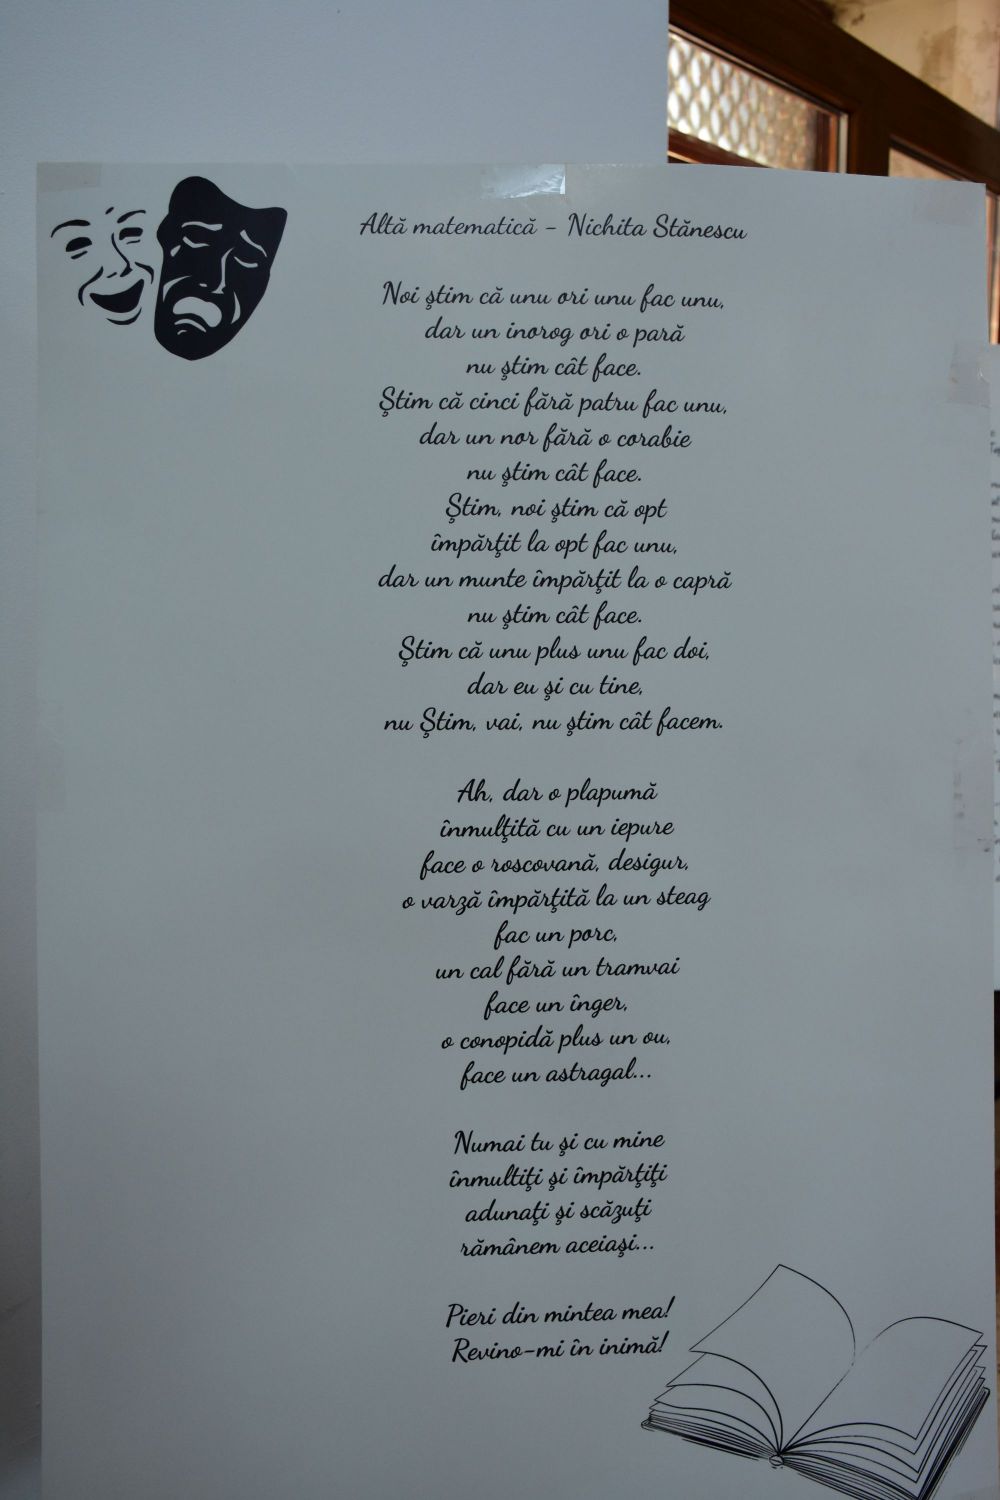 Altă matematică - Nichita Stănescu
Noi ştim că unu ori unu fac unu,
dar un inorog ori o pară
nu ştim cât face.
Ştim că cinci fără patru fac unu,
dar un nor fără o corabie
nu ştim cât face.
Ştim, noi ştim că opt
împărţit la opt fac unu,
dar un munte împărţit la o capră
nu ştim cât face.
Ştim că unu plus unu fac doi,
dar eu şi cu tine,
nu Ştim, vai, nu ştim cât facem.
Ah, dar o plapumă
înmulţită cu un iepure
face o roscovană, desigur,
o varză împărţită la un steag
fac un porc,
un cal fără un tramvai
face un înger,
o conopidă plus un ou,
face un astragal...
Numai tu şi cu mine
înmultiţi şi împărţiţi
adunaţi şi scăzuţi
rămânem aceiaşi...
Pieri din mintea mea!
Revino-mi în inimă!